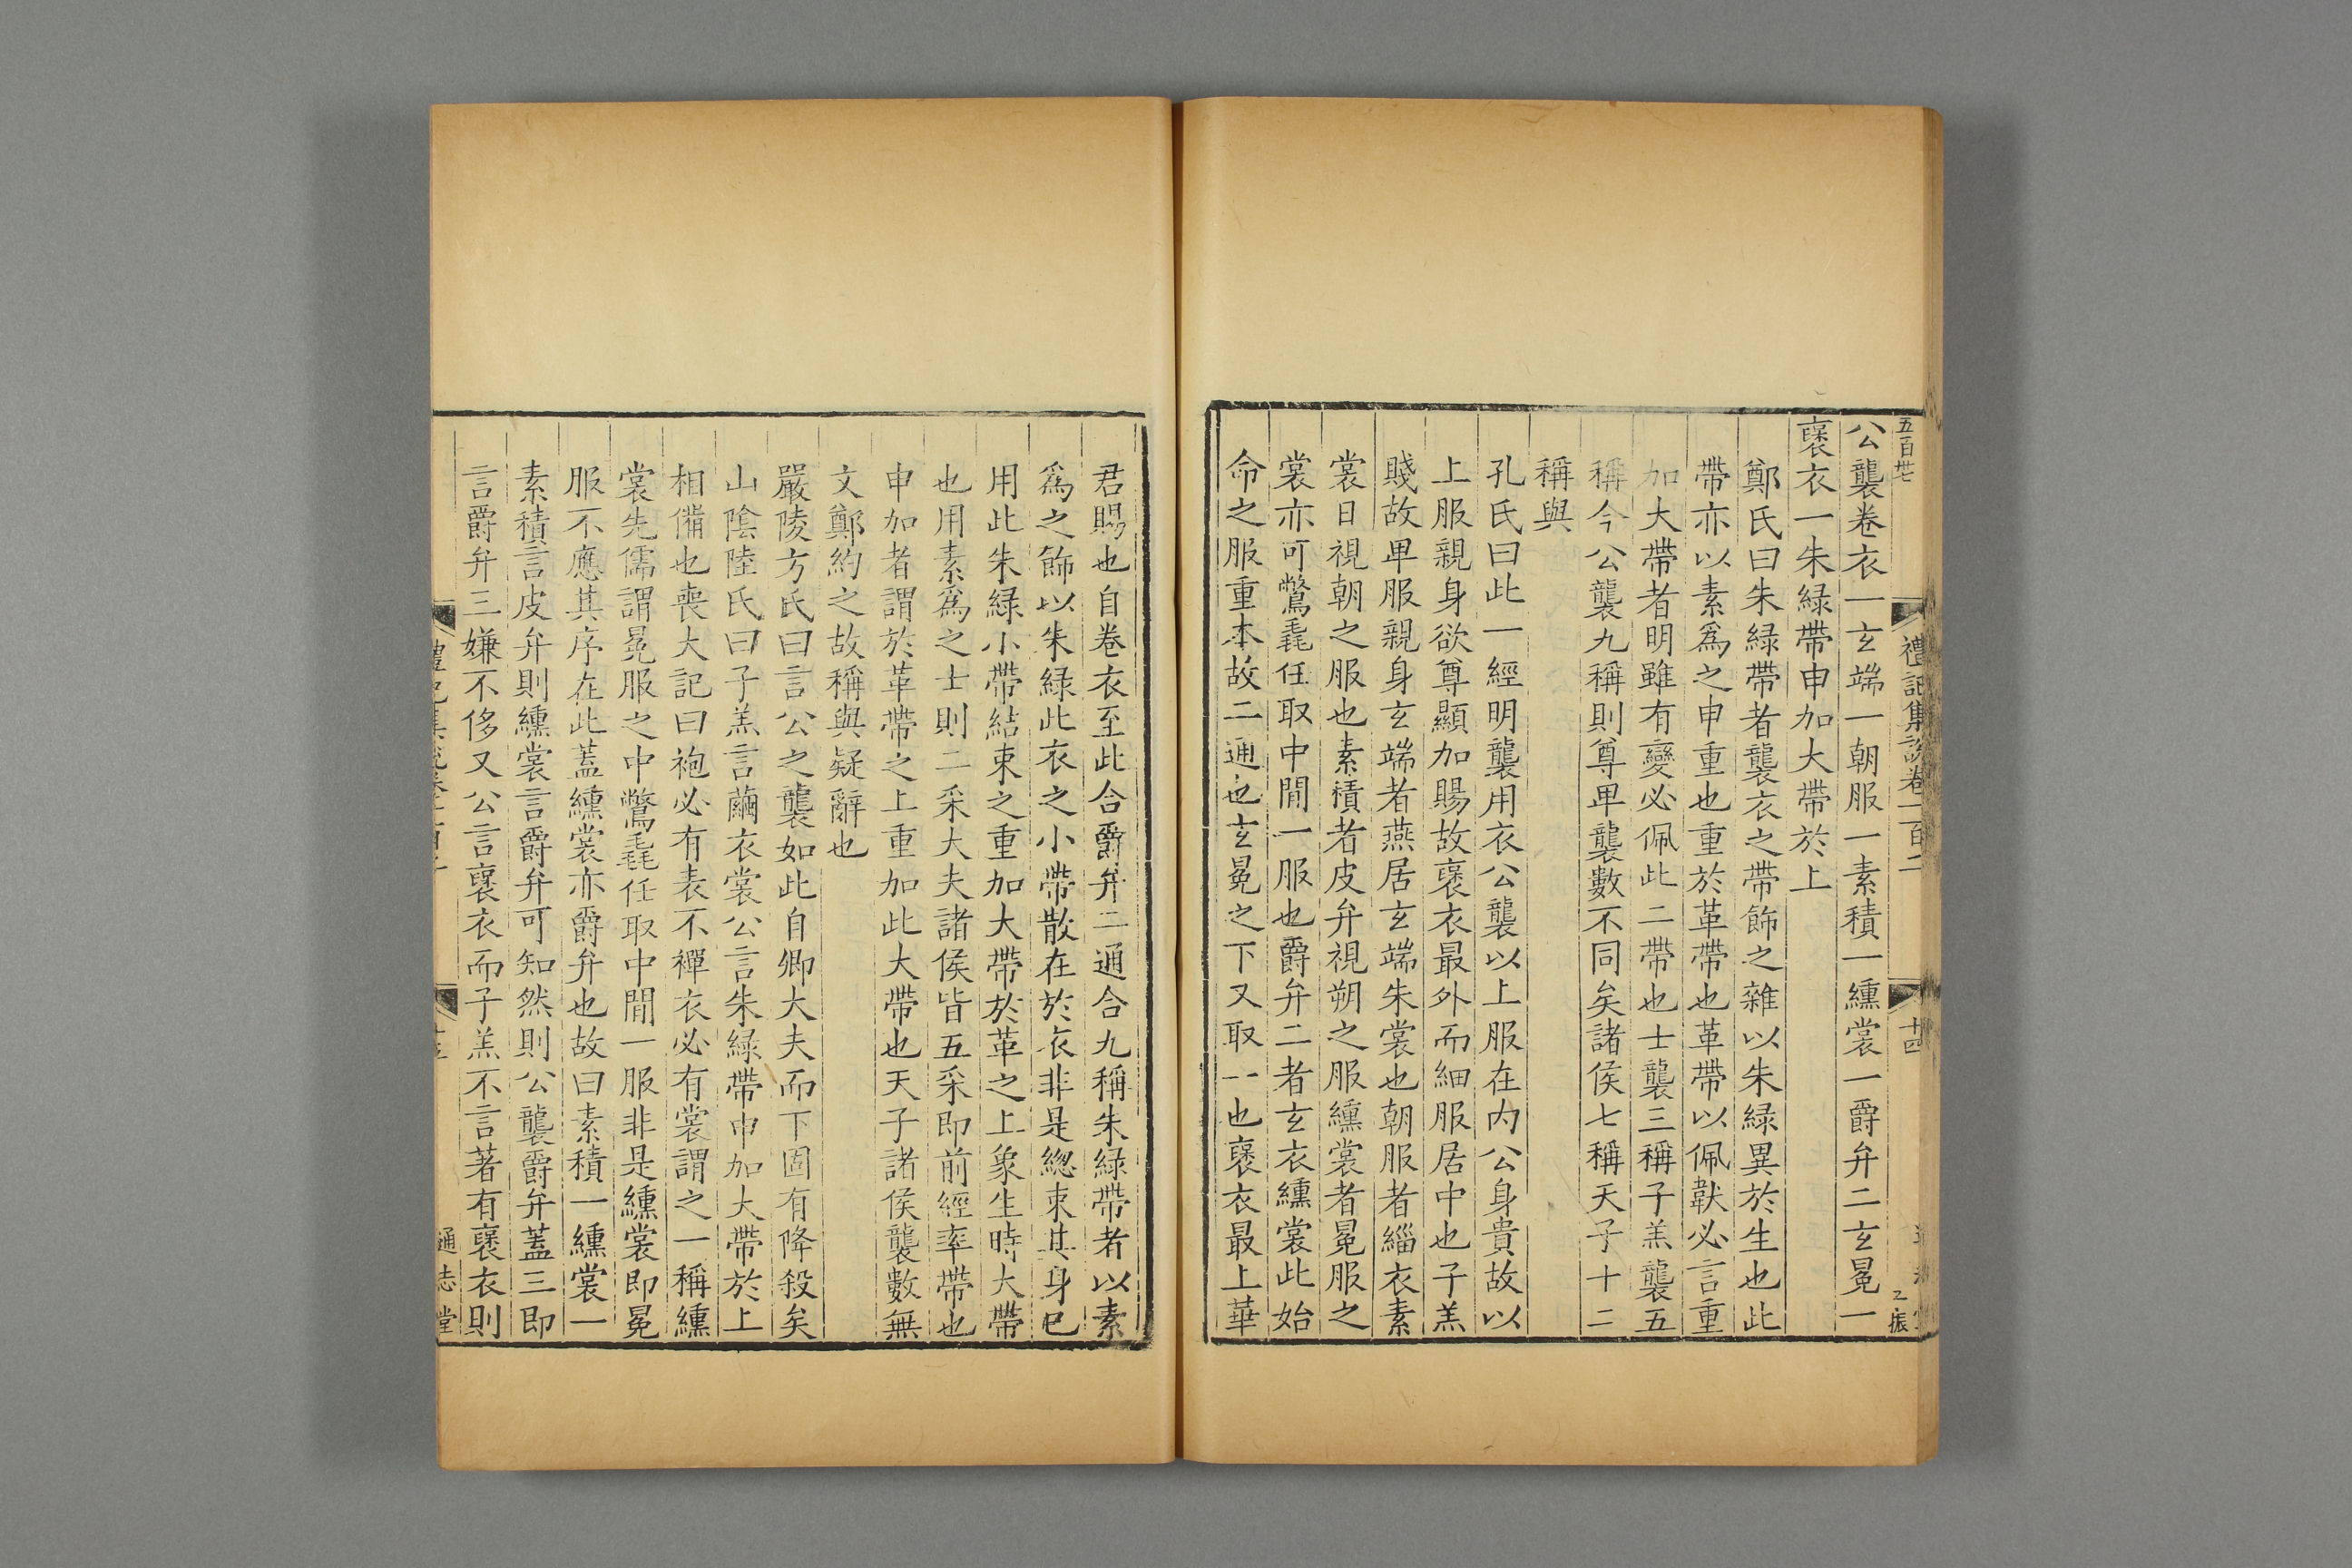 五百卅七
禮記集說卷一百二
十四
公襲卷衣一玄端一朝服一素積一纁裳一爵弁二玄冕一
襃衣一朱綠帶申加大帶於上
鄭氏曰朱綠帶者襲衣之帶飾之雜以朱綠異於生也此
帶亦以素爲之申重也重於革帶也革帶以佩韍必言重
加大帶者明雖有變必佩此二帶也士襲三稱子羔襲五
稱今公襲九稱則尊卑襲數不同矣諸侯七稱天子十二
稱與
孔氏曰此一經明襲用衣公襲以上服在內公身貴故以
上服親身欲尊顯加賜故襃衣最外而細服居中也子羔
賤故卑服親身玄端者燕居玄端朱裳也朝服者緇衣素
裳日視朝之服也素積者皮弁視朔之服纁裳者冕服之
裳亦可鷩毳任取中間一服也爵弁二者玄衣纁裳此始
命之服重本故二通也玄冕之下又取一也襃衣最上華
君賜也自卷衣至此合爵弁二通合九稱朱綠帶者以素
爲之飾以朱綠此衣之小帶散在於衣非是緫束其身已
用此朱綠小帶結束之重加大帶於革之上象生時大帶
也用素爲之士則二采大夫諸侯皆五采即前經率帶也
申加者謂於革帶之上重加此大帶也天子諸侯襲數無
文鄭約之故稱與疑辭也
嚴陵方氏曰言公之襲如此自卿大夫而下固有降殺矣
山陰陸氏曰子羔言繭衣裳公言朱綠帶申加大帶於上
相備也喪大記曰袍必有表不襌衣必有裳謂之一稱纁
裳先儒謂冕服之中鷩毳任取中間一服非是纁裳即冕
服不應其序在此蓋纁裳亦爵弁也故曰素積一纁裳一
素積言皮弁則纁裳言爵弁可知然則公襲爵弁蓋三即
言爵弁三嫌不侈又公言襃衣而子羔不言著有襃衣則
通志堂